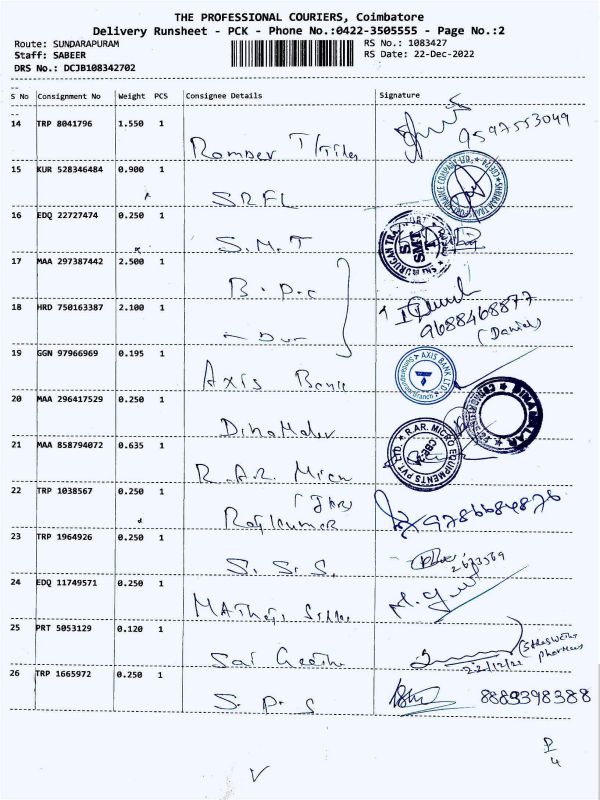 THE PROFESSIONAL COURIERS, Coimbatore
Delivery Runsheet - PCK - Phone No.:0422-3505555 - Page No.:2
Route: SUNDARAPURAM RS No.: 1083427
Staff: SABEER RS Date: 22-Dec-2022
DRS No.: DCJB108342702
S No Consignment No Weight PCS Consignee Details Signature
14 TRP 8041796 1.550 1
9597553049
15 KUR 528346484 0.900 1
S.R.F.L
16 EDQ 22727474 0.250 1
S.M.T
SMT
17 MAA 297387442 2.500 1
B.P.C
18 HRD 750163387 2.100 1
9688468877
(Daniel)
19 GGN 97966969 0.195 1
Axis Bank
AXIS BANK LTD
20 MAA 296417529 0.250 1
DINAMALAR
21 MAA 858794072 0.635 1
R.A.R. Micro
R.AR. MICRO EQUIPMENTS PVT. LTD.
CBE-24
22 TRP 1038567 0.250 1
Rajkumar
9786684876
23 TRP 1964926 0.250 1
S. S. S.
2673569
24 EDQ 11749571 0.250 1
25 PRT 5053129 0.120 1
Sai Geetha
22/12/22
26 TRP 1665972 0.250 1
S. P. S
8883398388
P
4